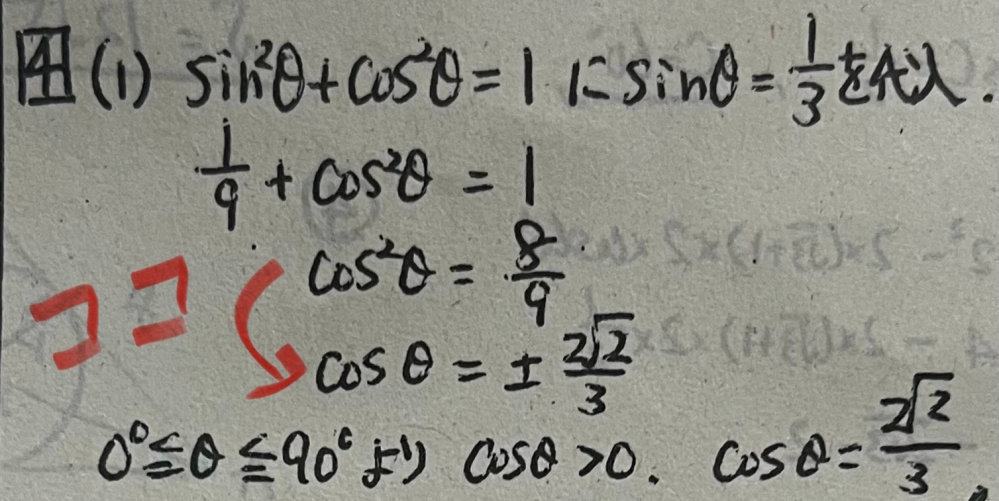 4 (1) sin²θ+cos²θ=1 に sinθ=1/3 を代入.
1/9 + cos²θ = 1
cos²θ = 8/9
ココ
cosθ = ± 2√2/3
0°≦θ≦90° より cosθ>0. cosθ= 2√2/3 。